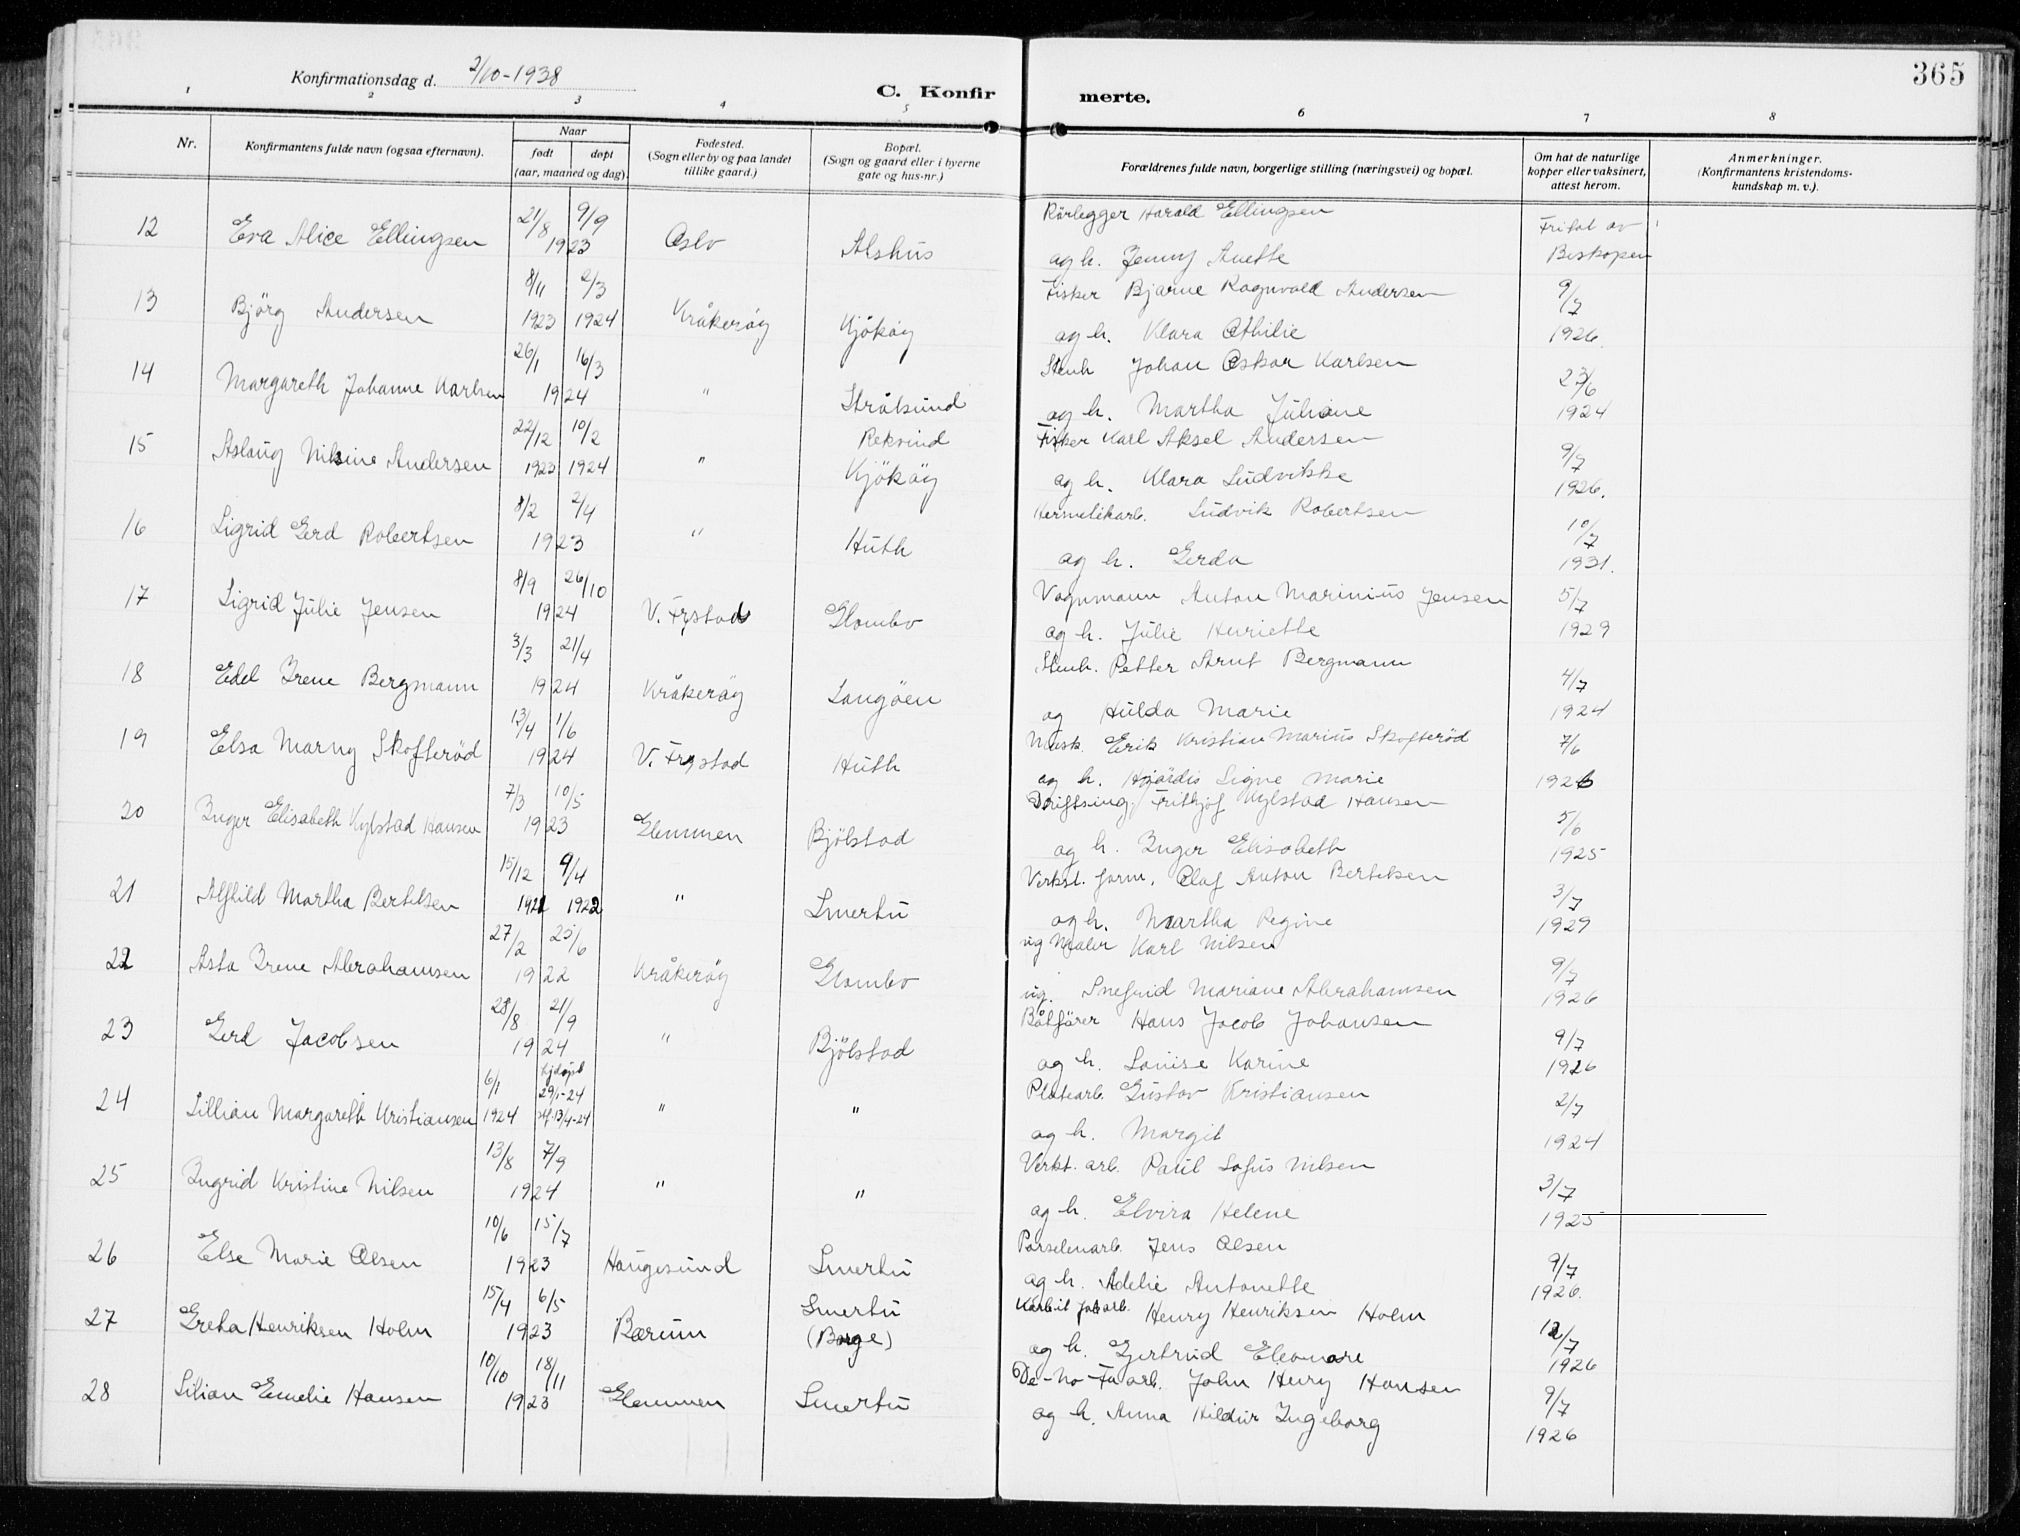 365
Konfirmationsdag d. 2/10-1938
C. Konfirmerte.
1 2 3 4 5 6 7 8
Nr.
Konfirmantens fulde navn (ogsaa efternavn).
Naar
født døpt
(aar, maaned og dag).
Fødested.
(Sogn eller by og paa landet
tillike gaard.)
Bopæl.
(Sogn og gaard eller i byerne
gate og hus-nr.)
Forældrenes fulde navn, borgerlige stilling (næringsvei) og bopæl.
Om hat de naturlige
kopper eller vaksinert,
attest herom.
Anmerkninger.
(Konfirmantens kristendoms-
kundskap m. v.).
12 Eva Alice Ellingsen 21/8 9/9 1923 Oslo Alshus Rørlegger Harald Ellingsen Fritat av
og h. Jenny Anette Biskopen
13 Bjørg Andersen 8/11 1923 2/3 1924 Kråkerøy Kjøkøy Fisker Bjarne Ragnvald Andersen 9/7
og h. Klara Othilie 1926.
14 Margareth Johanne Karlsen 26/1 16/3 1924 " Strålsund Stenh Johan Oskar Karlsen 23/6
og h. Martha Juliane 1924
15 Aslaug Nilsine Andersen 22/12 1923 10/2 1924 " Rekvind Kjøkøy Fisker Karl Aksel Andersen 9/7
og h. Klara Ludvikke 1926.
16 Sigrid Gerd Robertsen 8/2 2/4 1923 " Huth Hermetikarb. Ludvik Robertsen 10/7
og h. Gerda 1931.
17 Sigrid Julie Jensen 8/9 26/10 1924 V. Frstad Glombo Vognmann Anton Marinius Jensen 5/7
og h. Julie Henriette 1929
18 Edel Irene Bergmann 3/3 21/4 1924 Kråkerøy Langøen Stenh. Petter Arnt Bergmann 4/7
og Hulda Marie 1924
19 Elsa Marny Skofterød 13/4 1/6 1924 V. Frstad Huth Musk. Erik Kristian Marius Skofterød 7/6
og h. Hjørdis Signe Marie 1926
20 Inger Elisabeth Kylstad Hansen 7/3 10/5 1923 Glemmen Bjølstad Driftsing. Frithjof Kylstad Hansen 5/6
og h. Inger Elisabeth 1925
21 Alfhild Martha Bertelsen 15/12 1921 9/4 1922 " Smertu Verkst. form. Olaf Anton Bertelsen 3/7
og h. Martha Regine 1929
22 Asta Irene Abrahamsen 27/2 25/6 1922 Kråkerøy Glombo ug Maler Karl Nilsen 9/7
ug. Snefrid Mariane Abrahamsen 1926
23 Gerd Jacobsen 28/8 21/9 1924 " Bjølstad Båtfører Hans Jacob Johansen 9/7
og h. Louise Karine 1926
24 Lillian Margareth Kristiansen 6/1 1924 hjdøpt 29/1-24 stf. 13/4-24 " " Platearb. Gustav Kristiansen 2/7
og h. Margit 1924
25 Ingrid Kristine Nilsen 13/8 7/9 1924 " " Verkt. arb. Paul Sofus Nilsen 3/7
og h. Elvira Helene 1925
26 Else Marie Olsen 10/6 15/7 1923 Haugesund Smertu Porselenarb. Jens Olsen 9/7
og h. Adelie Antonette 1926.
27 Greta Henriksen Holm 15/4 6/5 1923 Bærum Smertu (Borge) Karbit fabarb. Henry Henriksen Holm 12/7
og h. Gjertrud Eleonore 1926
28 Lilian Emelie Hansen 10/10 18/11 1923 Glemmen Smertu De-No-Fa arb. John Henry Hansen 9/7
og h. Anna Hildur Ingeborg 1926